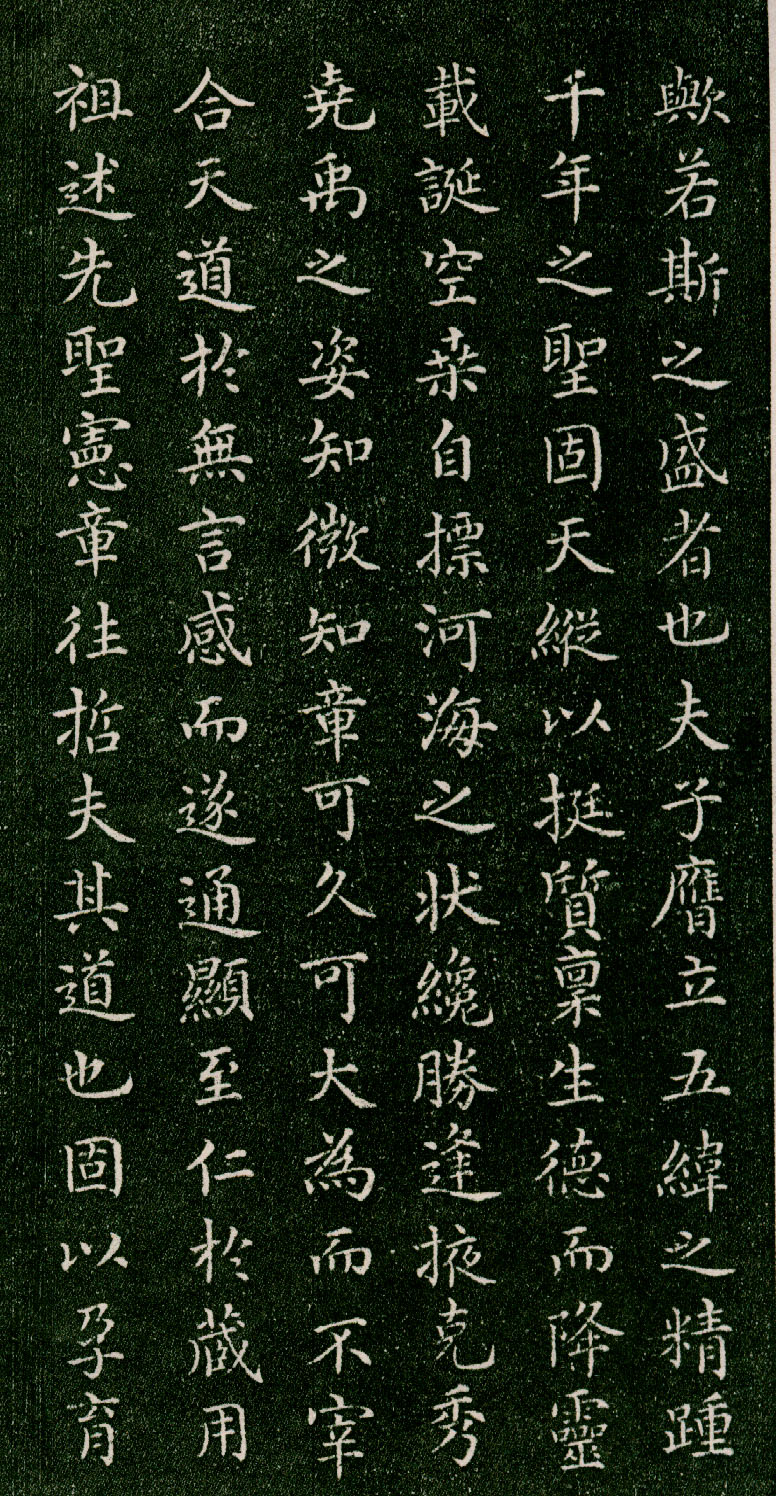 歟若斯之盛者也夫子膺立五緯之精踵
千年之聖固天縱以挺質稟生德而降靈
載誕空桒自摽河海之狀纔勝逢掖克秀
堯禹之姿知微知章可久可大為而不宰
合天道於無言感而遂通顯至仁於蔵用
祖述先聖憲章往哲夫其道也固以孕育